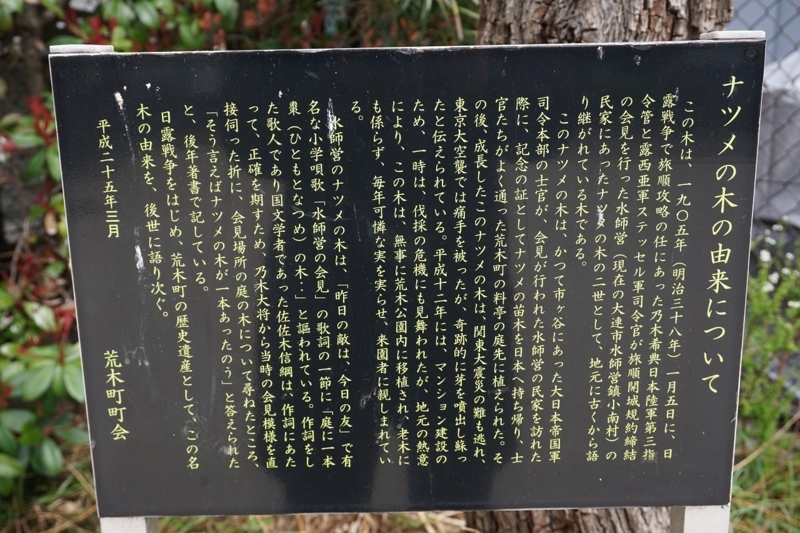 ナツメの木の由来について
この木は、一九〇五年（明治三十八年）一月五日に、日
露戦争で旅順攻略の任にあった乃木希典日本陸軍第三指
令管と露西亜軍ステッセル軍司令官が旅順開城規約締結
の会見を行った水師営（現在の大連市水師営鎮小南村）の
民家にあったナツメの木の二世として、地元に古くから語
り継がれている木である。
このナツメの木は、かつて市ヶ谷にあった大日本帝国軍
司令本部の士官が、会見が行われた水師営の民家を訪れた
際に、記念の証としてナツメの苗木を日本へ持ち帰り、士
官たちがよく通った荒木町の料亭の庭先に植えられた。そ
の後、成長したこのナツメの木は、関東大震災の難も逃れ、
東京大空襲では痛手を被ったが、奇跡的に芽を噴出し蘇っ
たと伝えられている。平成十二年には、マンション建設の
ため、一時は、伐採の危機にも見舞われたが、地元の熱意
により、この木は、無事に荒木公園内に移植され、老木に
も係らず、毎年可憐な実を実らせ、来園者に親しまれてい
る。
水師営のナツメの木は、「昨日の敵は、今日の友」で有
名な小学唄歌「水師営の会見」の歌詞の一節に「庭に一本
棗（ひともとなつめ）の木‥」と謳われている。作詞をし
た歌人であり国文学者であった佐佐木信綱は、作詞にあた
って、正確を期すため、乃木大将から当時の会見模様を直
接伺った折に、会見場所の庭の木について尋ねたところ、
「そう言えばナツメの木が一本あったのう」と答えられた
と、後年著書で記している。
日露戦争をはじめ、荒木町の歴史遺産として、この名
木の由来を、後世に語り次ぐ。
平成二十五年三月
荒木町町会